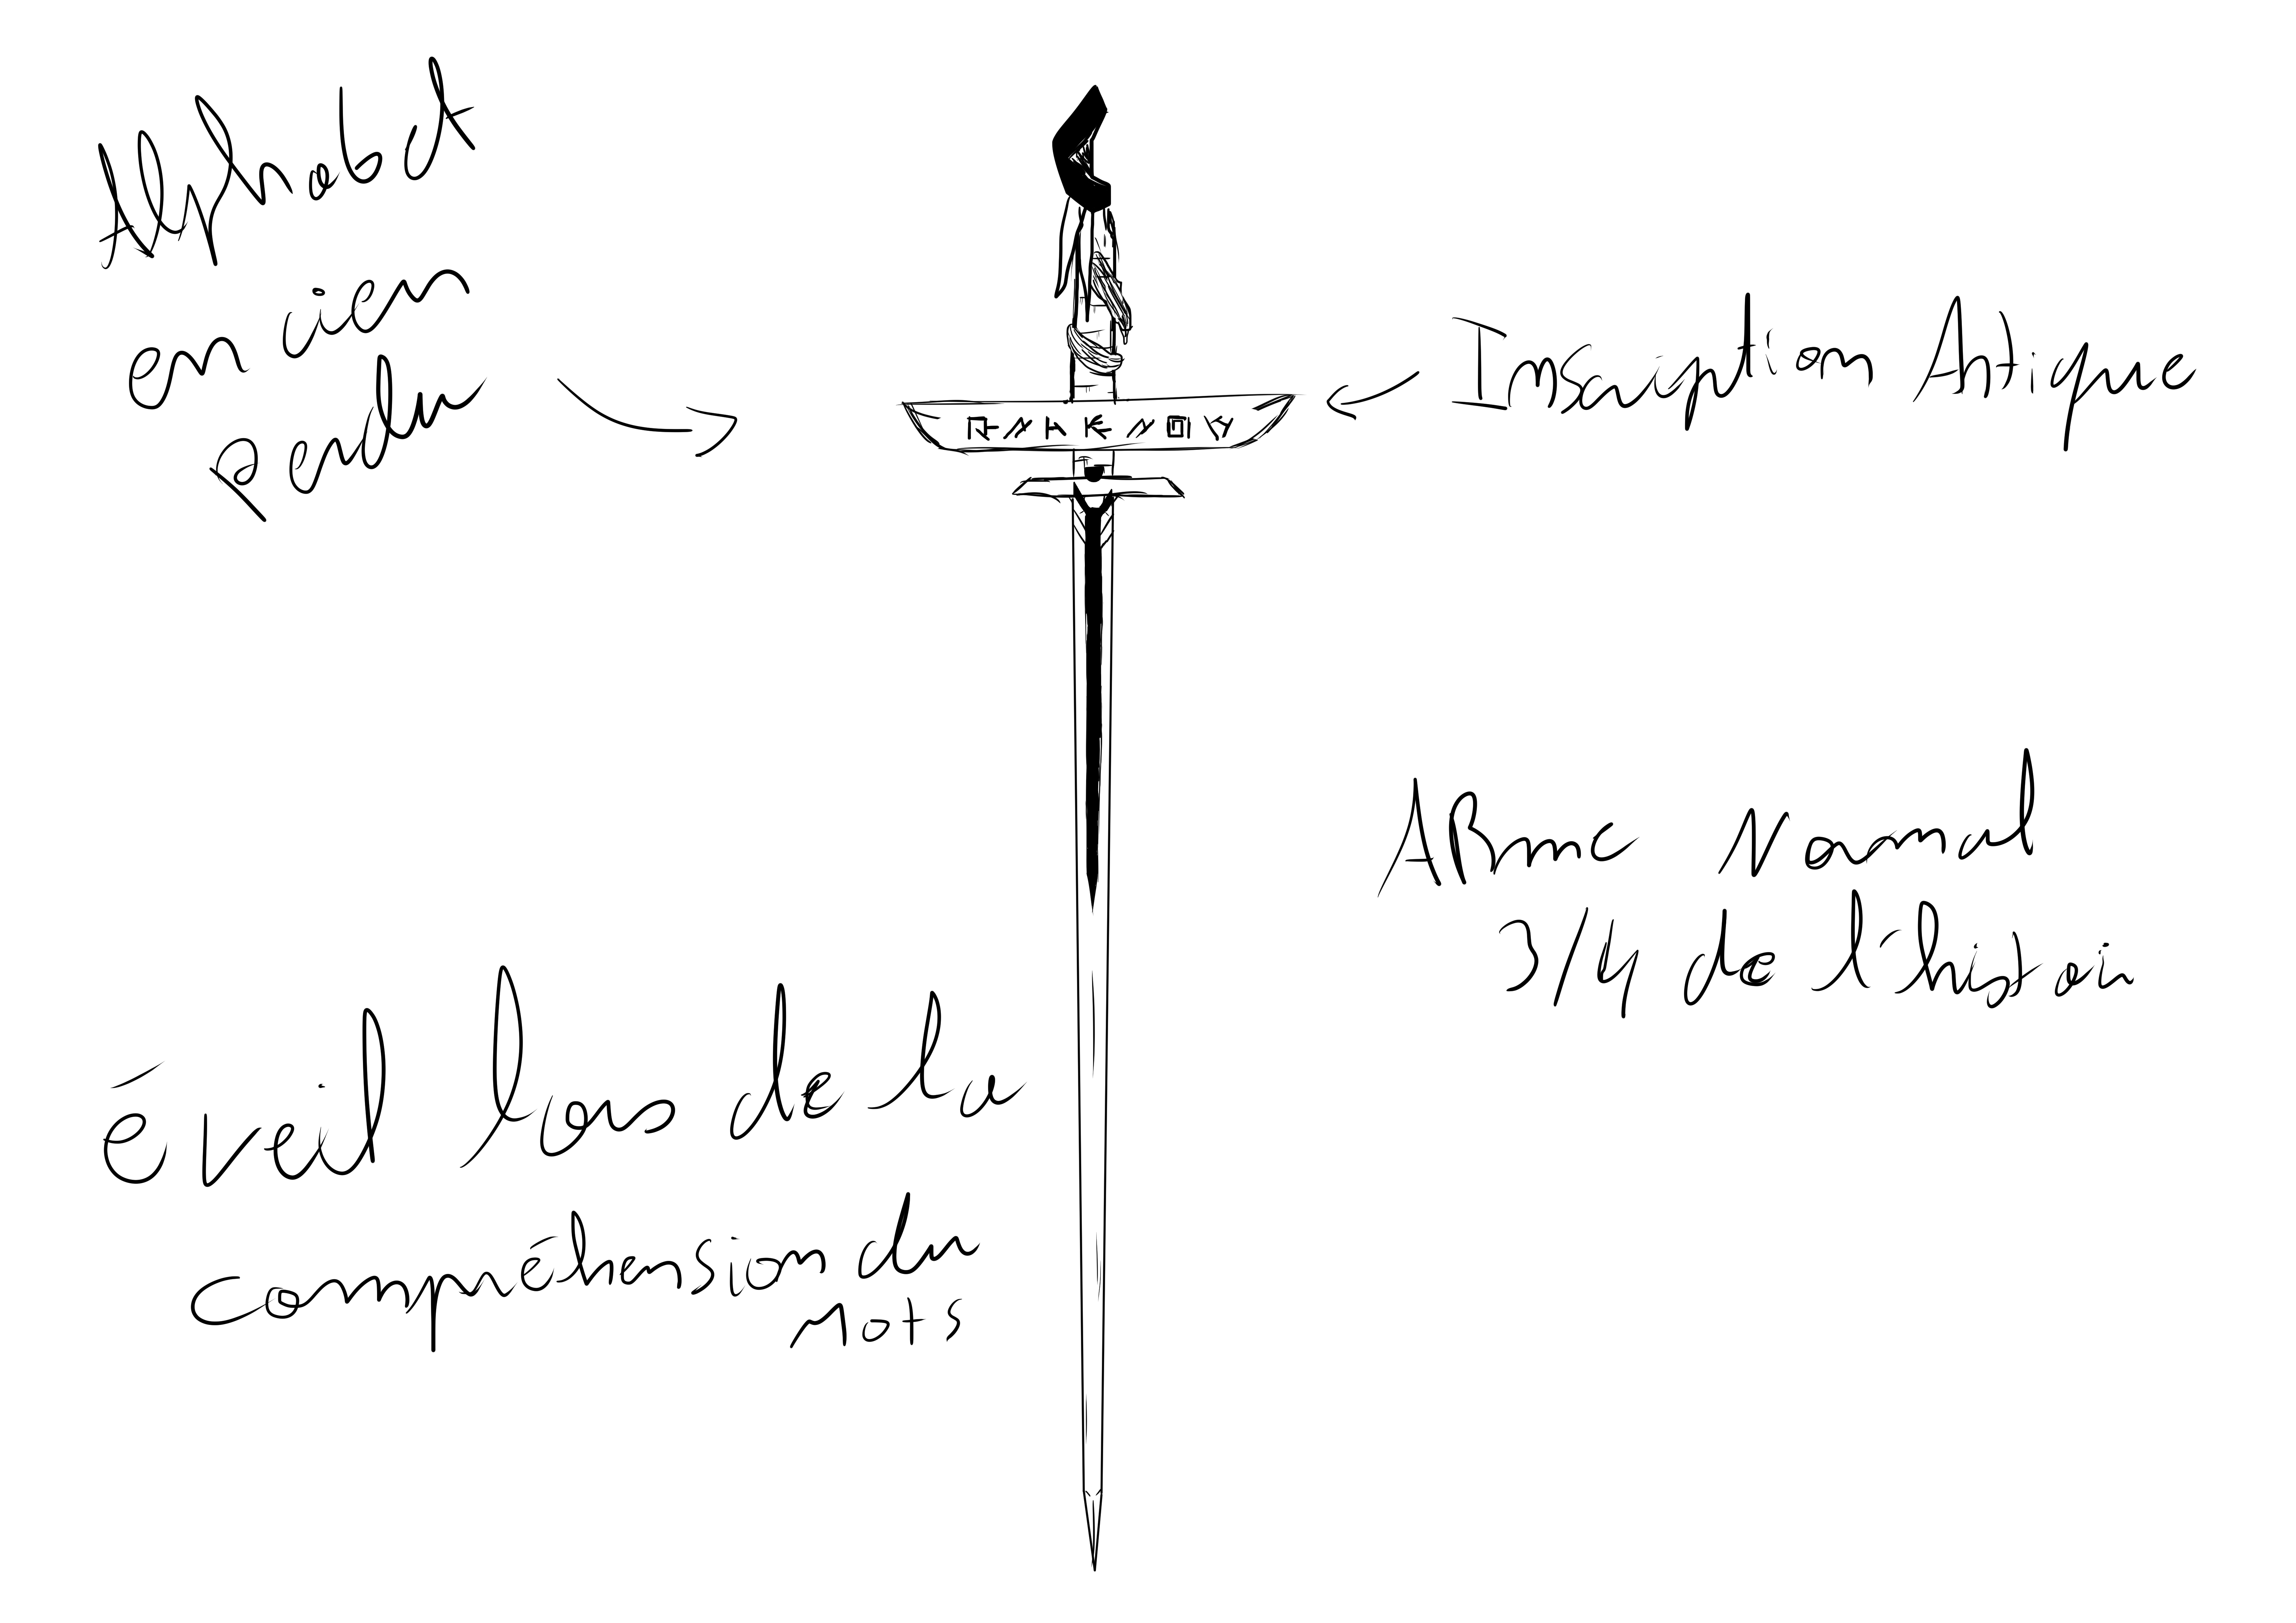 Alphabet
ancien
Perdu
Inscription Antique
ARme Normal
3/4 de l'histoi
éveil lors de la
compréhension du
mots